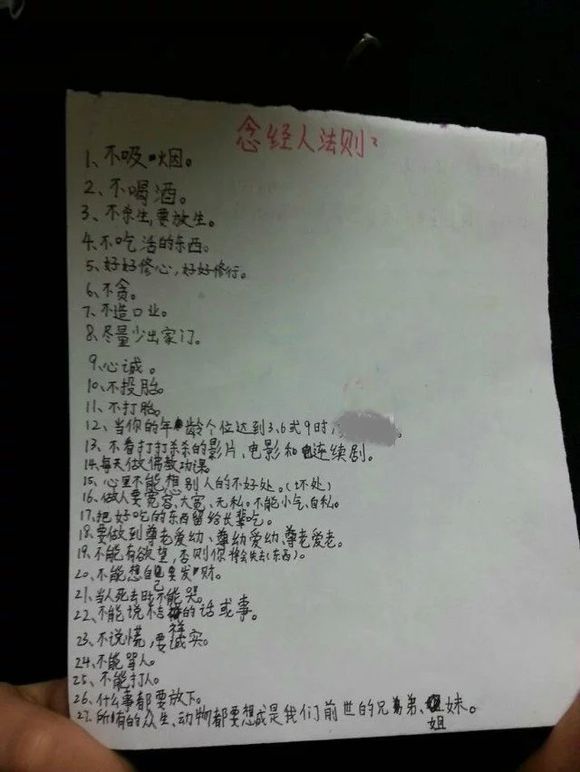 念经人法则
1、不吸烟。
2、不喝酒。
3、不杀生,要放生。
4、不吃活的东西。
5、好好修心,好好修行。
6、不贪。
7、不造口业。
8、尽量少出家门。
9、心诚。
10、不投胎。
11、不打胎。
12、当你的年龄个位达到3、6或9时,
13、不看打打杀杀的影片、电影和电连续剧。
14、每天做佛教功课。
15、心里不能想别人的不好处。(坏处)
16、做人要宽容、大宽、无私。不能小气、自私。
17、把好吃的东西留给长辈吃。
18、要做到尊老爱幼、尊幼爱幼、尊老爱老。
19、不能有欲望,否则你将会失去(东西)。
20、不能想自己要发财。
21、当人死去时不能哭。
22、不能说不吉祥的话或事。
23、不说慌,要诚实。
24、不能骂人。
25、不能打人。
26、什么事都要放下。
27、所有的众生、动物都要想成是我们前世的兄弟、姐妹。